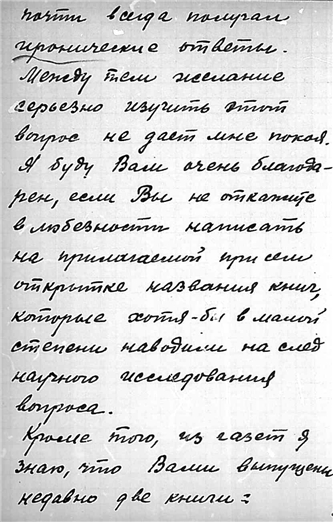 почти всегда получал
иронические ответы.
Между тем желание
серьезно изучить этот
вопрос не дает мне покоя.
Я буду Вам очень благода-
рен, если Вы не откажите
в любезности написать
на прилагаемой при сем
открытке названия книг,
которые хотя-бы в малой
степени наводили на след
научного исследования
вопроса.
Кроме того, из газет я
знаю, что Вами выпущены
недавно две книги: